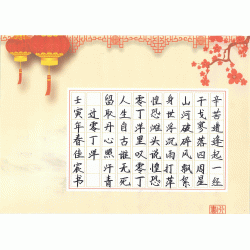 辛苦遭逢起一经
干戈寥落四周星
山河破碎风飘絮
身世浮沉雨打萍
惶恐滩头说惶恐
零丁洋里叹零丁
人生自古谁无死
留取丹心照汗青
过零丁洋
壬寅年春佳宸书